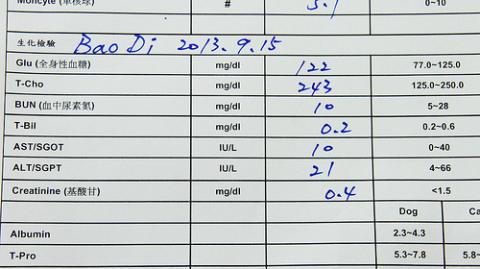 Moncyte (單核球) # 5.1 0~10
生化檢驗 Bao Di 2013.9.15
Glu (全身性血糖) mg/dl 122 77.0~125.0
T-Cho mg/dl 243 125.0~250.0
BUN (血中尿素氮) mg/dl 10 5~28
T-Bil mg/dl 0.2 0.2~0.6
AST/SGOT IU/L 10 0~40
ALT/SGPT IU/L 21 4~66
Creatinine (基酸甘) mg/dl 0.4 <1.5
Dog Ca
Albumin 2.3~4.3
T-Pro 5.3~7.8 5.8~